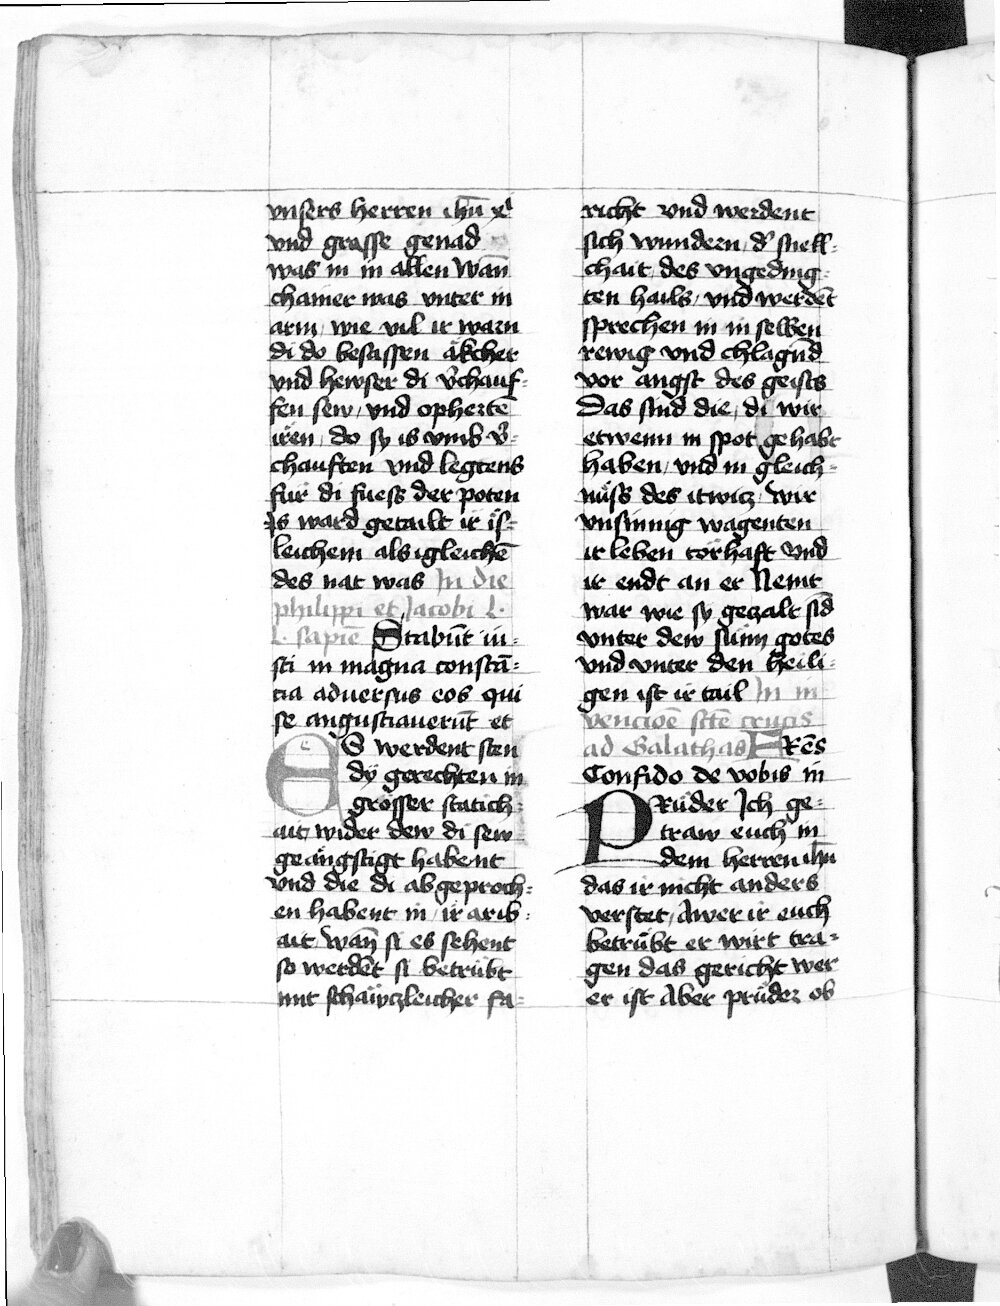 vnsers herren ihū xͥ
vnd grosse genad
was in in allen Wān
chainer was vnter in
arm / wie vil ir warn
di do besassen äkcher
vnd hewser di v̄chauf-
fen sew / vnd opherte
iren / do sy is vmb v̄-
chauften vnd legtens
für di fuess der poten
Is ward getailt ir is-
leichem als igleichē
des nat was In die
philippi et Jacobi L.
L. sapiē Stabūt iu-
sti in magna constā-
tia aduersus eos qui
se angustiauerūt et
ES werdent sten
dy gerechten in
grösser statich-
ait / wider dew di sew
geängstigt habent
vnd die di abgeproch-
en habent in / ir arib-
ait / Wañ si es sehent
so werdēt si betrübt
mit schäwczleicher fa-
richt vnd werdent
sich wundern / d' snell-
chait / des vngeding-
ten hails / vnd werdēt
sprechen in in selben
rewig vnd chlagūd
vor angst des geists
Das sind die / di wir
etwenn in spot gehabt
haben / vnd in gleich-
nüss des itwicz / Wir
vnsinnig wagenten
ir leben törhaft vnd
ir endt an er Nemt
war wie sy geczalt sīd
vnter dew sünn gotes
vnd vnter den heili-
gen ist ir tail In in
vencioē scte crucis
ad Galathas FRēs
Confido de vobis in
PRüder Ich ge-
traw euch in
dem herren ihū
das ir nicht anders
verstet / Awer ir euch
betrübt er wirt tra-
gen das gericht wer
er ist Aber prüder ob